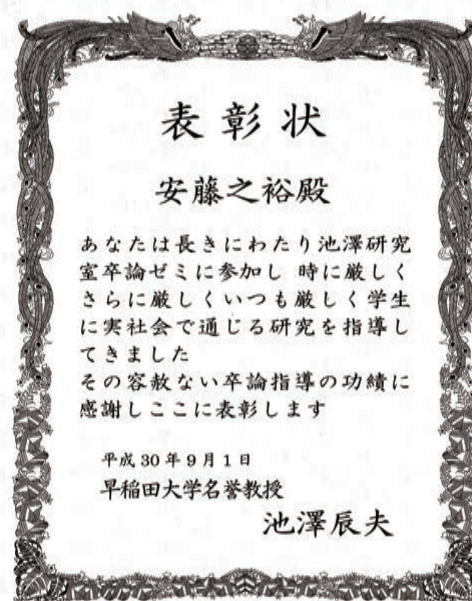 表彰状
安藤之裕殿
あなたは長きにわたり池澤研究
室卒論ゼミに参加し 時に厳しく
さらに厳しくいつも厳しく学生
に実社会で通じる研究を指導し
てきました
その容赦ない卒論指導の功績に
感謝しここに表彰します
平成30年9月1日
早稲田大学名誉教授
池澤辰夫